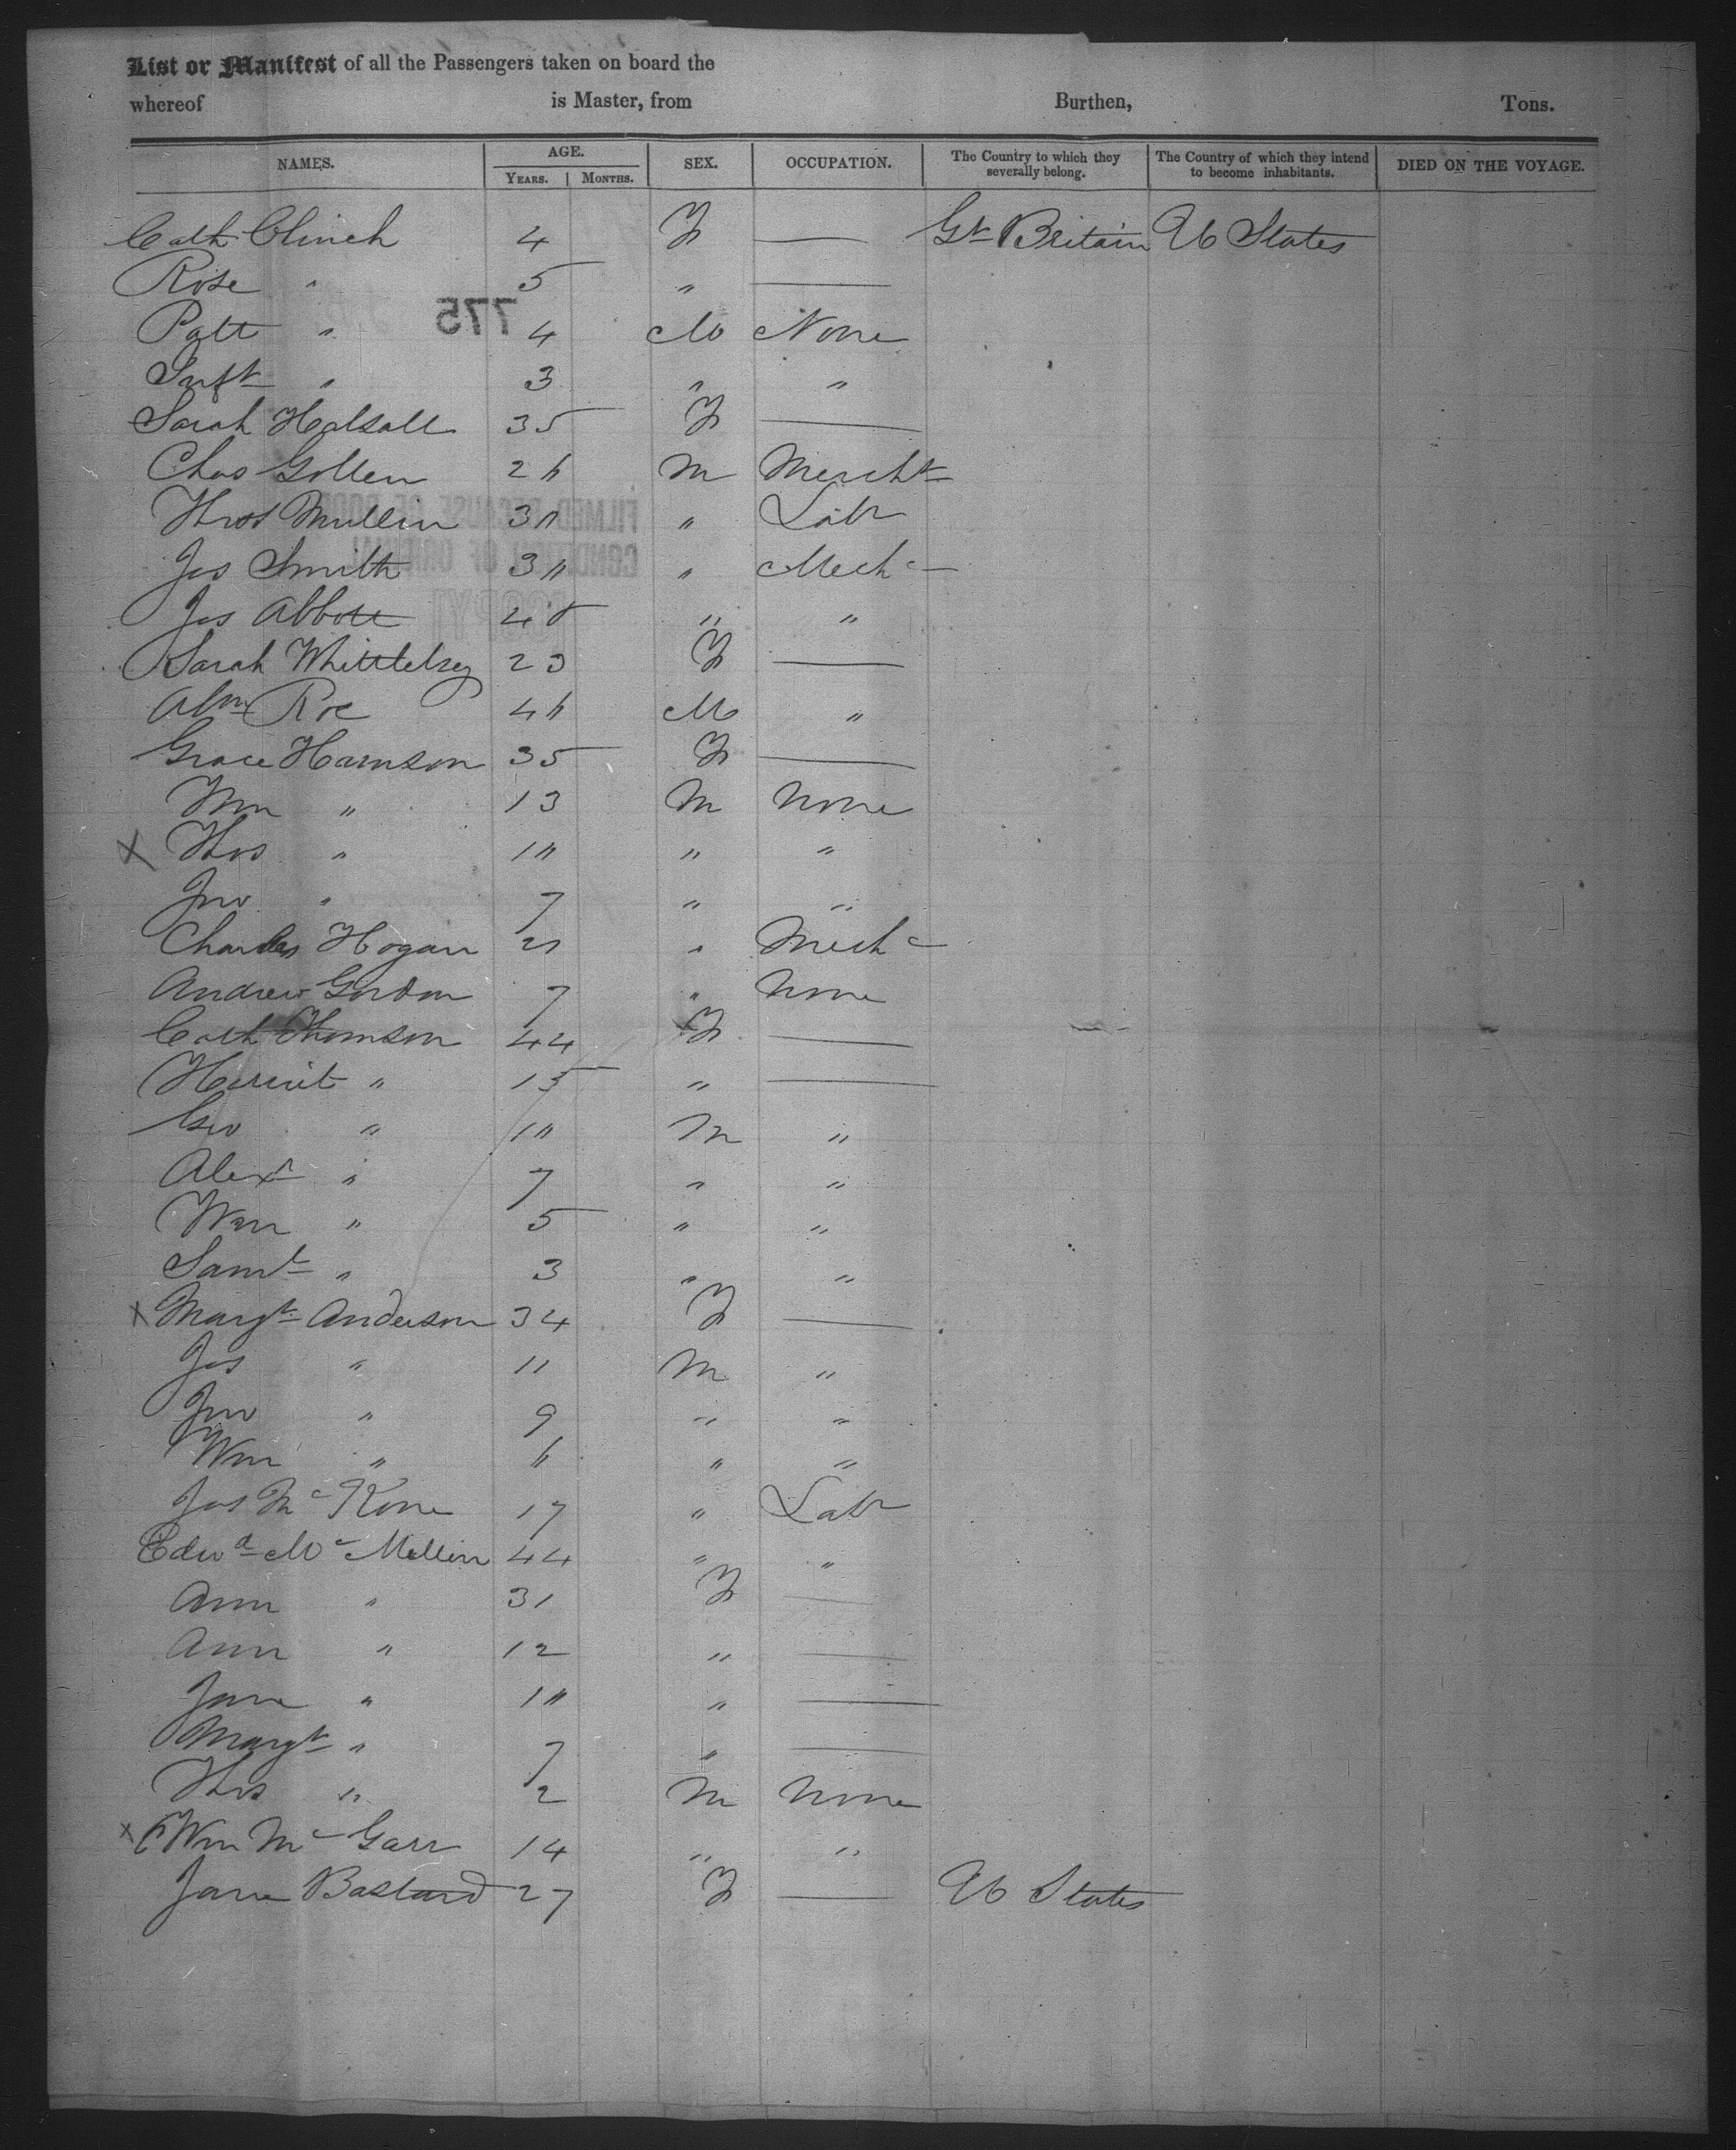 List or Manifest of all the Passengers taken on board the
whereof is Master, from Burthen, Tons.
NAMES. AGE. YEARS. MONTHS. SEX. OCCUPATION. The Country to which they severally belong. The Country of which they intend to become inhabitants. DIED ON THE VOYAGE.
Cath Clinch 4 F — Gt Britain U States
Rose " 5 " —
775
Patt " 4 M None
Inft " 3 " "
Sarah Halsall 35 F —
Chas Gollen 26 M Mercht
Thos Mullin 30 " Labr
FILMED BECAUSE OF POOR
CONDITION OF ORIGINAL
COPY]
Jas Smith 30 " Mechc
Jas Abbott 40 " "
Sarah Whittelsey 23 F —
Abm Roe 46 M "
Grace Harrison 35 F —
Wm " 13 M None
X Thos " 10 " "
Jno " 7 " "
Charles Hogan 21 " Mechc
Andrew Gordon 7 " None
Cath Thomson 44 F —
Harriet " 15 " —
Geo " 10 M "
Alexr " 7 " "
Wm " 5 " "
Saml " 3 " "
X Margt Anderson 34 F —
Jas " 11 M "
Jno " 9 " "
Wm " 6 " "
Jas Mc Kone 17 " Labr
Edwd Mc Mellin 44 " "
Ann " 31 F —
Ann " 12 " —
Jane " 10 " —
Margt " 7 " —
Thos " 2 M None
X Wm Mc Garr 14 " "
Jane Bastard 27 F — U States